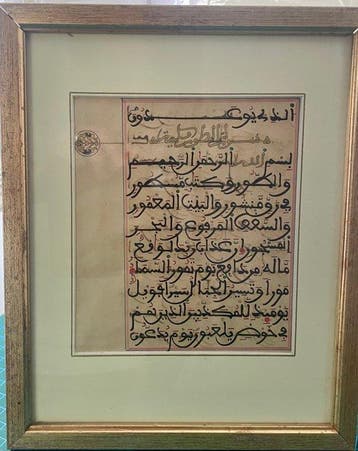 الذي يوعدون
الطور
بسم الله الرحمن الرحيم
والطور وكتب مسطور
في رق منشور والبيت المعمور
والسقف المرفوع والبحر
المسجور إن عذاب ربك لواقع
ماله من دافع يوم تمور السماء
مورا وتسير الجبال سيرا فويل
يومئذ للمكذبين الذين هم
في خوض يلعبون يوم يدعون